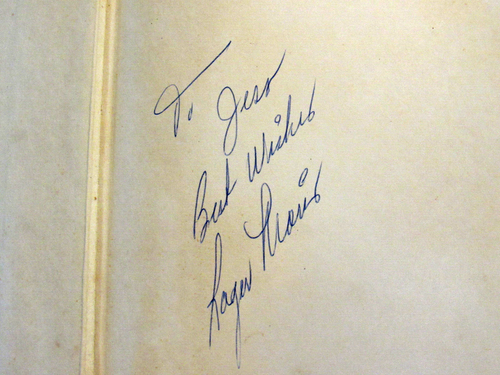 To Jess
Best Wishes
Roger Maris